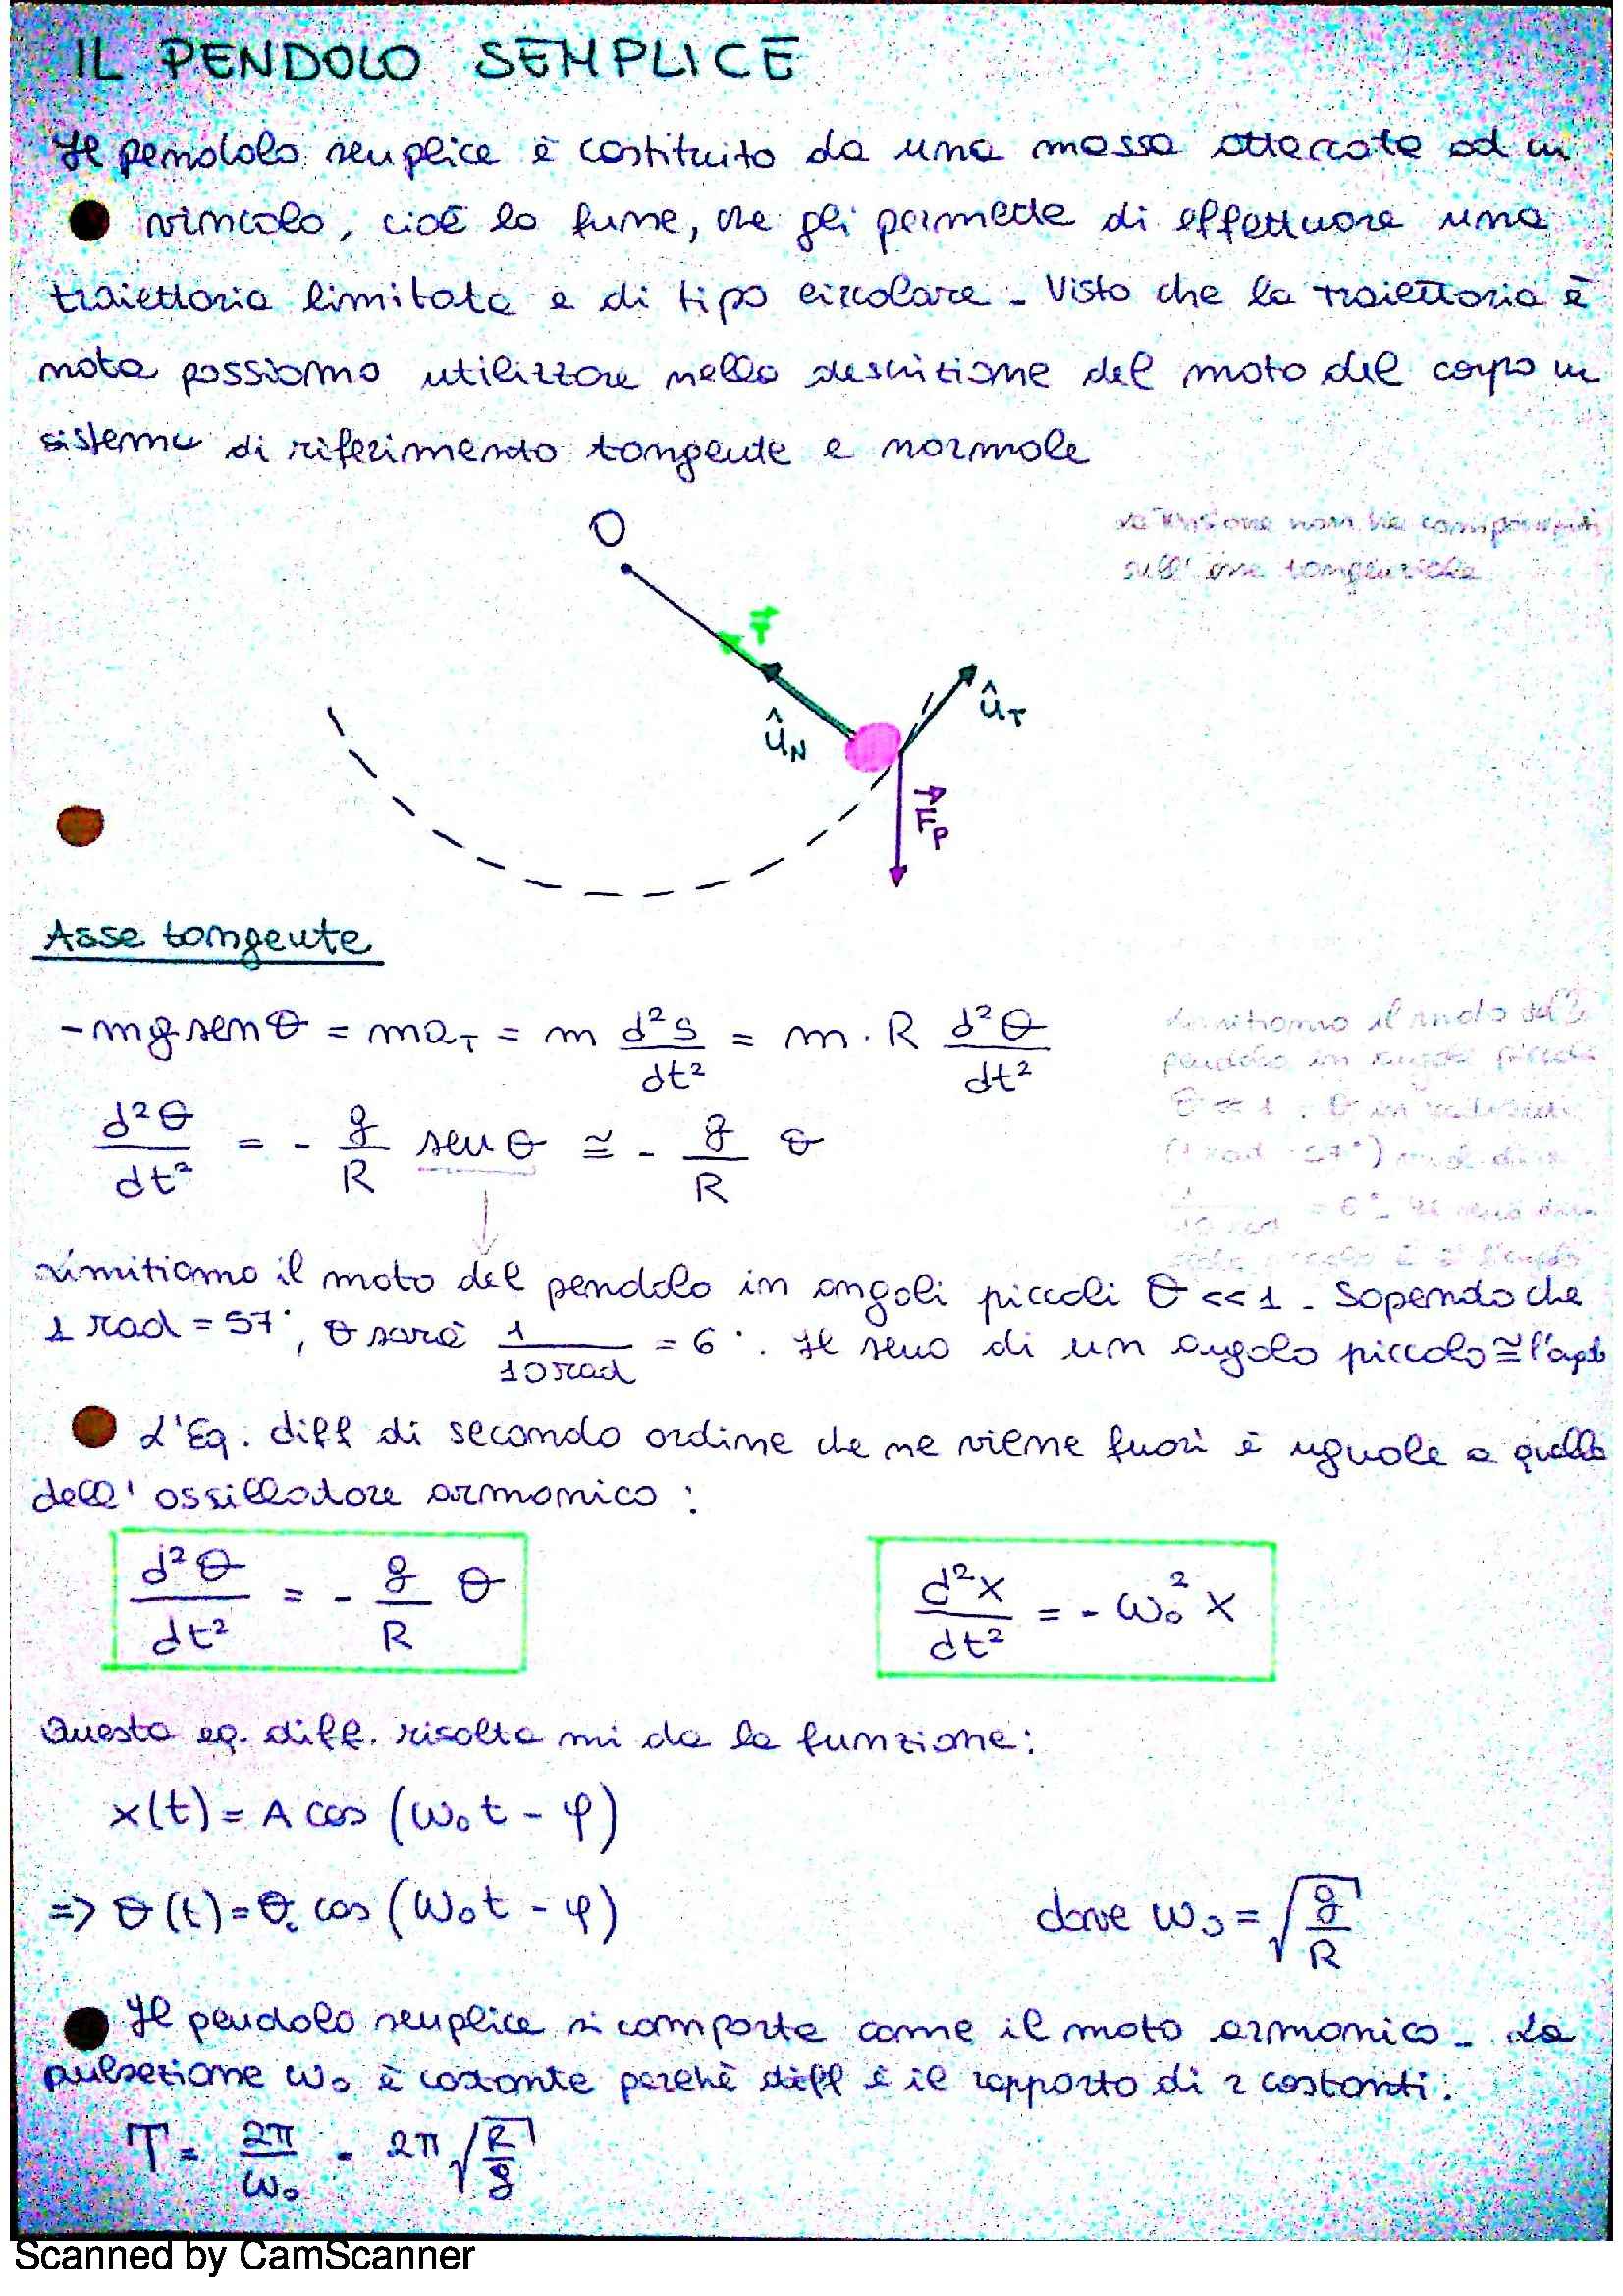 IL PENDOLO SEMPLICE
Il pendolo semplice è costituito da una massa attaccata ad un
vincolo, cioè la fune, che gli permette di effettuare una
traiettoria limitata e di tipo circolare. Visto che la traiettoria è
nota possiamo utilizzare nella descrizione del moto del corpo un
sistema di riferimento tangente e normale
la tensione non ha componenti
sull'asse tangenziale
O
T
û_N
û_T
F_P
Asse tangente
-mg senθ = ma_T = m d²s/dt² = m · R d²θ/dt²
d²θ/dt² = - g/R senθ ≅ - g/R θ
Limitiamo il moto del pendolo in angoli piccoli θ <<1. Sapendo che
1 rad = 57°, θ sarà 1/10 rad = 6°. Il seno di un angolo piccolo ≅ l'
L'Eq. diff di secondo ordine che ne viene fuori è uguale a quella
dell'ossillatore armonico:
d²θ/dt² = - g/R θ
d²x/dt² = - ω₀² x
Questa eq. diff. risolta mi da la funzione:
x(t) = A cos (ω₀t - φ)
=> θ(t) = θ₀ cos (ω₀t - φ) dove ω₀ = √(g/R)
Il pendolo semplice si comporta come il moto armonico. La
pulsazione ω₀ è costante perchè è il rapporto di 2 costanti:
T = 2π/ω₀ = 2π √(R/g)
Scanned by CamScanner